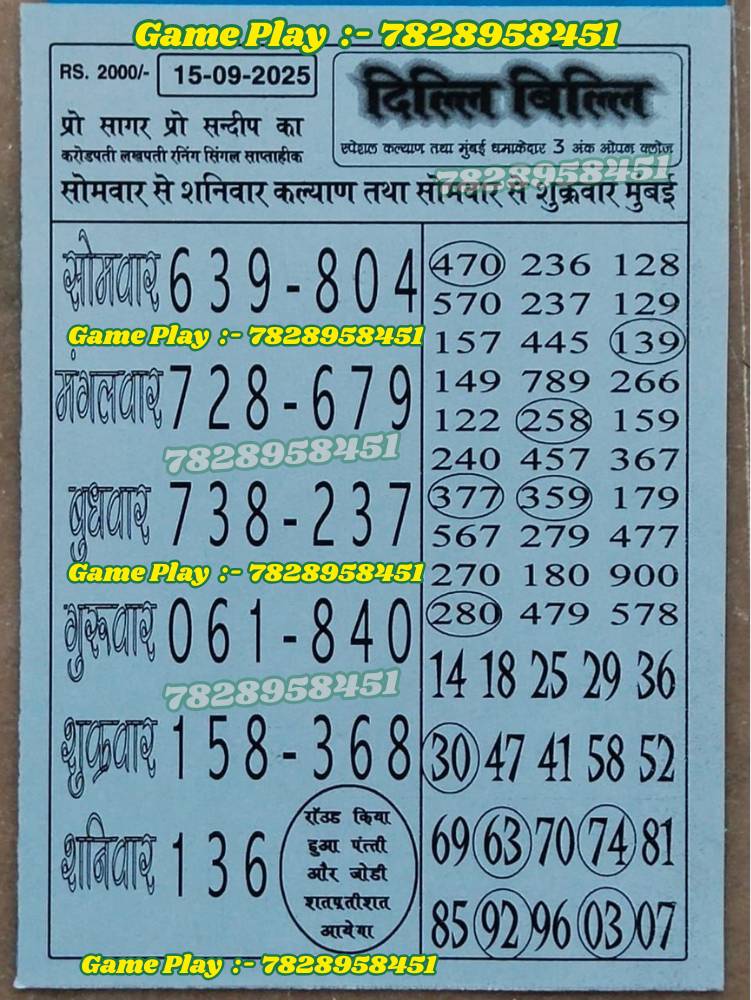 Game Play :- 7828958451
RS. 2000/- 15-09-2025
दिल्लि बिल्लि
प्रो सागर प्रो सन्दीप का
स्पेशल कल्याण तथा मुंबई धमाकेदार 3 अंक ओपन क्लोज
करोडपती लखपती रनिंग सिंगल साप्ताहीक
7828958451
सोमवार से शनिवार कल्याण तथा सोमवार से शुक्रवार मुबई
सोमवार 639-804
Game Play :- 7828958451
मंगलवार 728-679
7828958451
बुधवार 738-237
Game Play :- 7828958451
गुरूवार 061-840
7828958451
शुक्रवार 158-368
शनिवार 136
राॅउड किया
हुआ पंत्ती
और जोडी
शतप्रतीशत
आयेगा
470 236 128
570 237 129
157 445 139
149 789 266
122 258 159
240 457 367
377 359 179
567 279 477
270 180 900
280 479 578
14 18 25 29 36
30 47 41 58 52
69 63 70 74 81
85 92 96 03 07
Game Play :- 7828958451